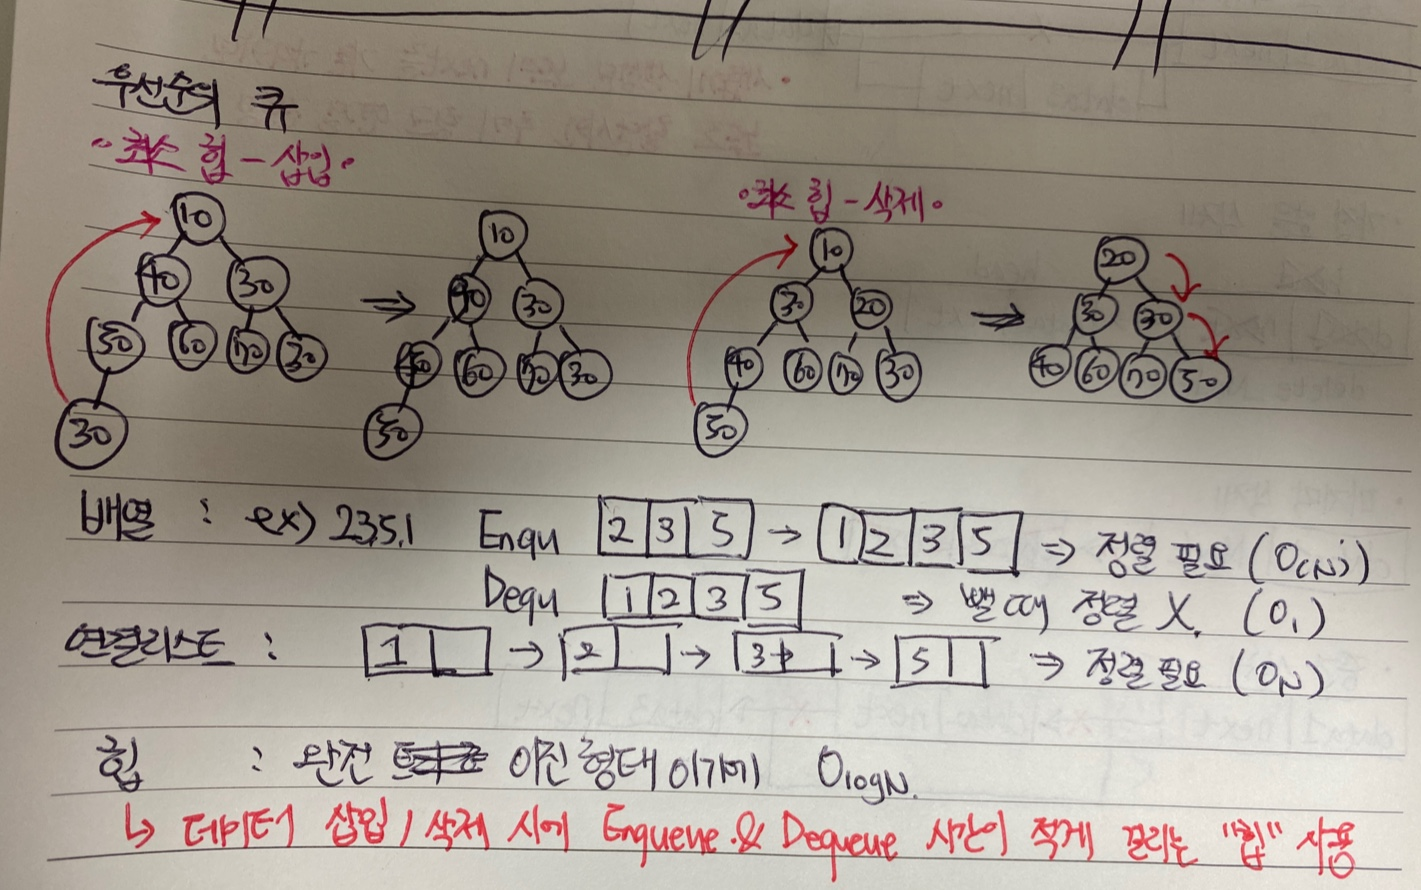 우선순위 큐
•최소 힙-삽입•
•최소 힙-삭제•
10 10 10 20
40 30 30 30 20 30 30
50 60 70 30 60 70 30 40 60 70 30 40 60 70 50
30 50 50
배열 : ex) 2,3,5,1 Enqu 2 3 5 → 1 2 3 5 ⇒ 정렬 필요 (O(N))
Dequ 1 2 3 5 ⇒ 뺄 때 정렬 X. (O1)
연결리스트 : 1 → 2 → 3 → 5 ⇒ 정렬필요 (ON)
힙 : 완전 이진형태이기에 OlogN.
↳ 데이터 삽입/삭제 시에 Enqueue & Dequeue 시간이 적게 걸리는 "힙" 사용